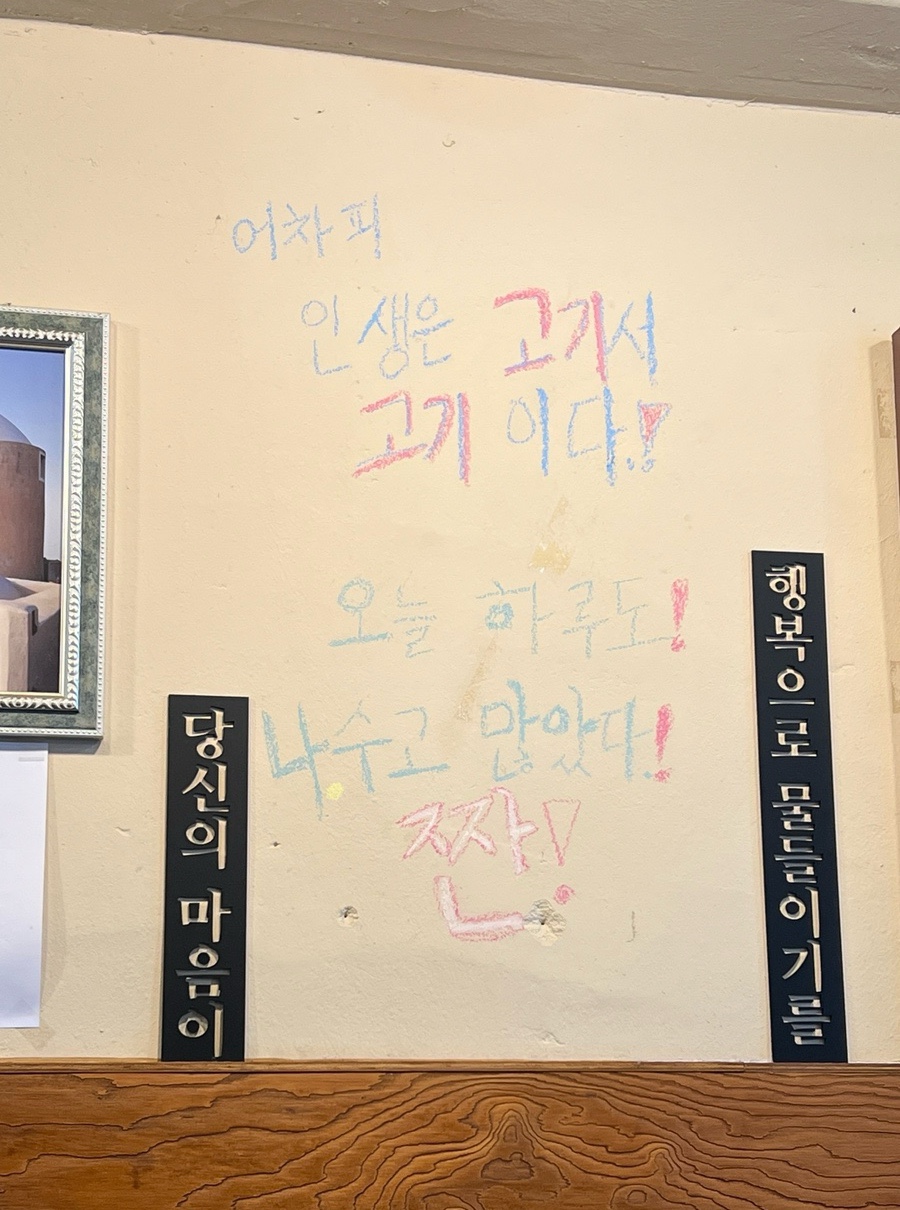 어차피
인생은 고기서
고기 이다!
오늘 하루도!
나수고 많았다!
짠!
당신의 마음이
행복으로 물들이기를